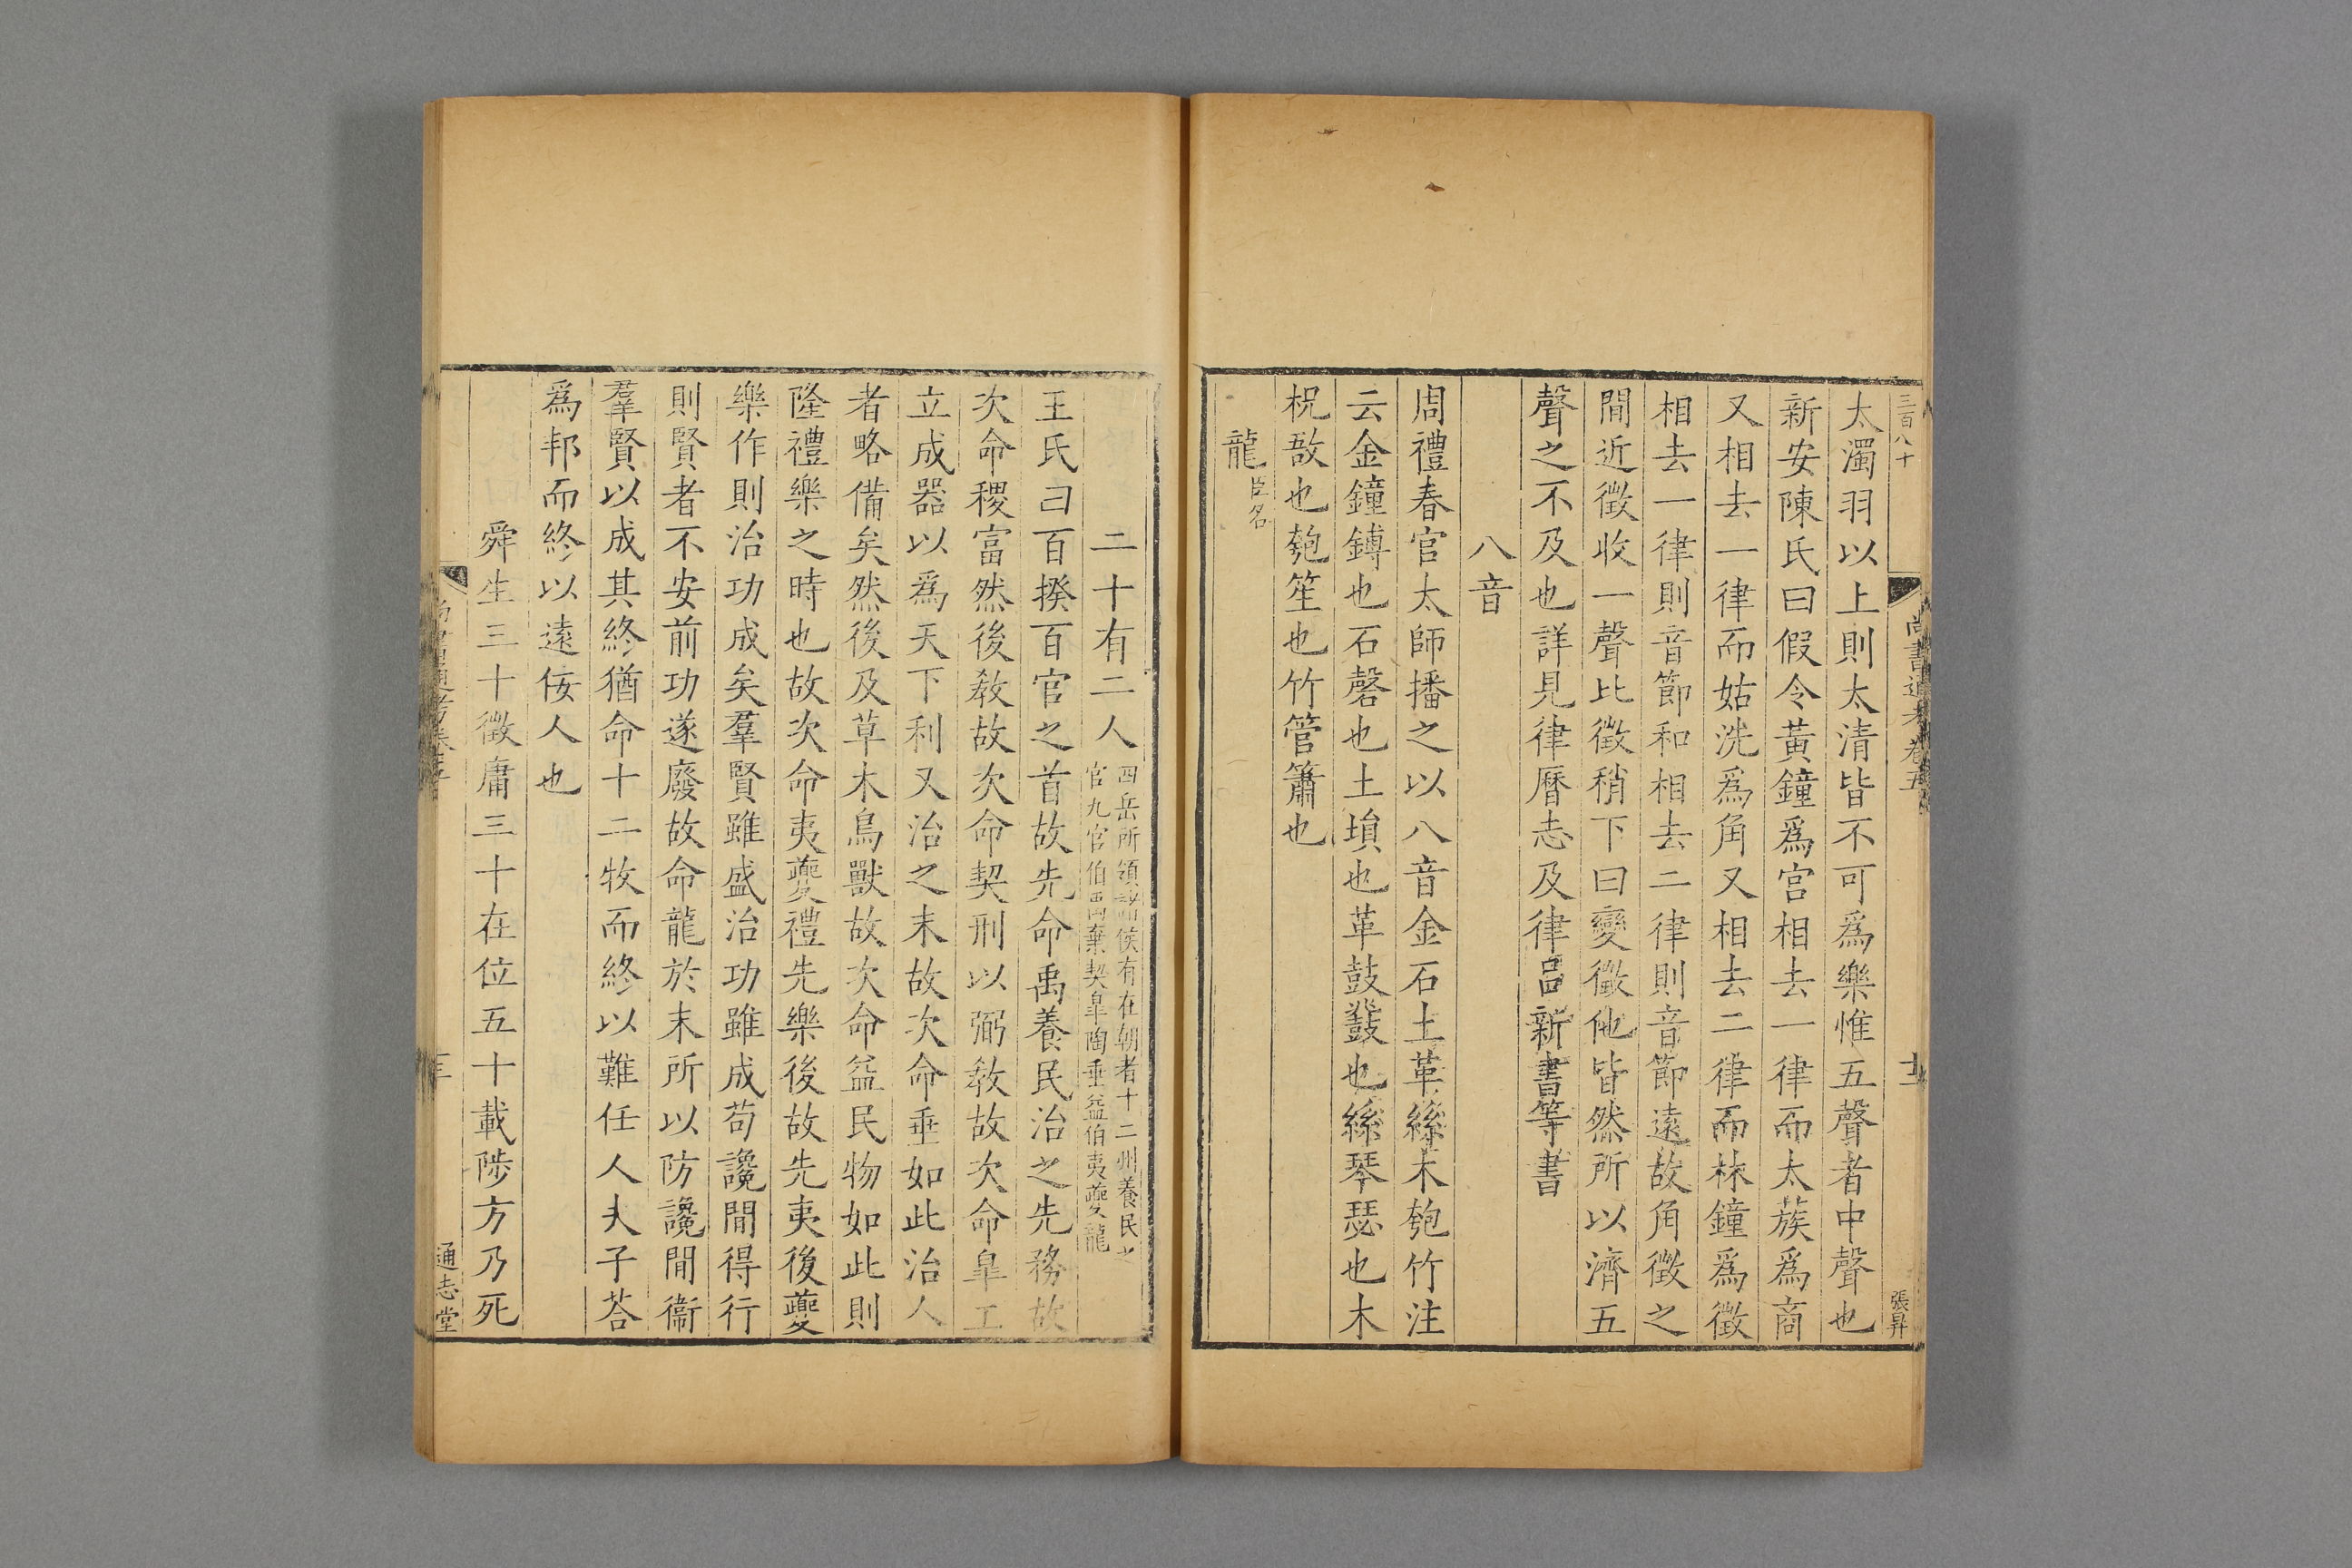 三百八十
尚書通考卷五
張昇
太濁羽以上則太清皆不可爲樂惟五聲者中聲也
新安陳氏曰假令黃鐘爲宮相去一律而太蔟爲商
又相去一律而姑洗爲角又相去二律而林鐘爲徵
相去一律則音節和相去二律則音節遠故角徵之
閒近徵收一聲比徵稍下曰變徵他皆然所以濟五
聲之不及也詳見律曆志及律呂新書等書
八音
周禮春官太師播之以八音金石土革絲木匏竹注
云金鐘鎛也石磬也土塤也革鼓鼗也絲琴瑟也木
柷敔也匏笙也竹管簫也
龍臣名
二十有二人四岳所領諸侯有在朝者十二州養民之
官九官伯禹棄契皐陶垂益伯夷夔龍
王氏曰百揆百官之首故先命禹養民治之先務故
次命稷富然後敎故次命契刑以弼敎故次命皐工
立成器以爲天下利又治之末故次命垂如此治人
者略備矣然後及草木鳥獸故次命益民物如此則
隆禮樂之時也故次命夷夔禮先樂後故先夷後夔
樂作則治功成矣羣賢雖盛治功雖成苟讒閒得行
則賢者不安前功遂廢故命龍於末所以防讒閒衞
羣賢以成其終猶命十二牧而終以難任人夫子荅
爲邦而終以遠佞人也
舜生三十徵庸三十在位五十載陟方乃死
通志堂